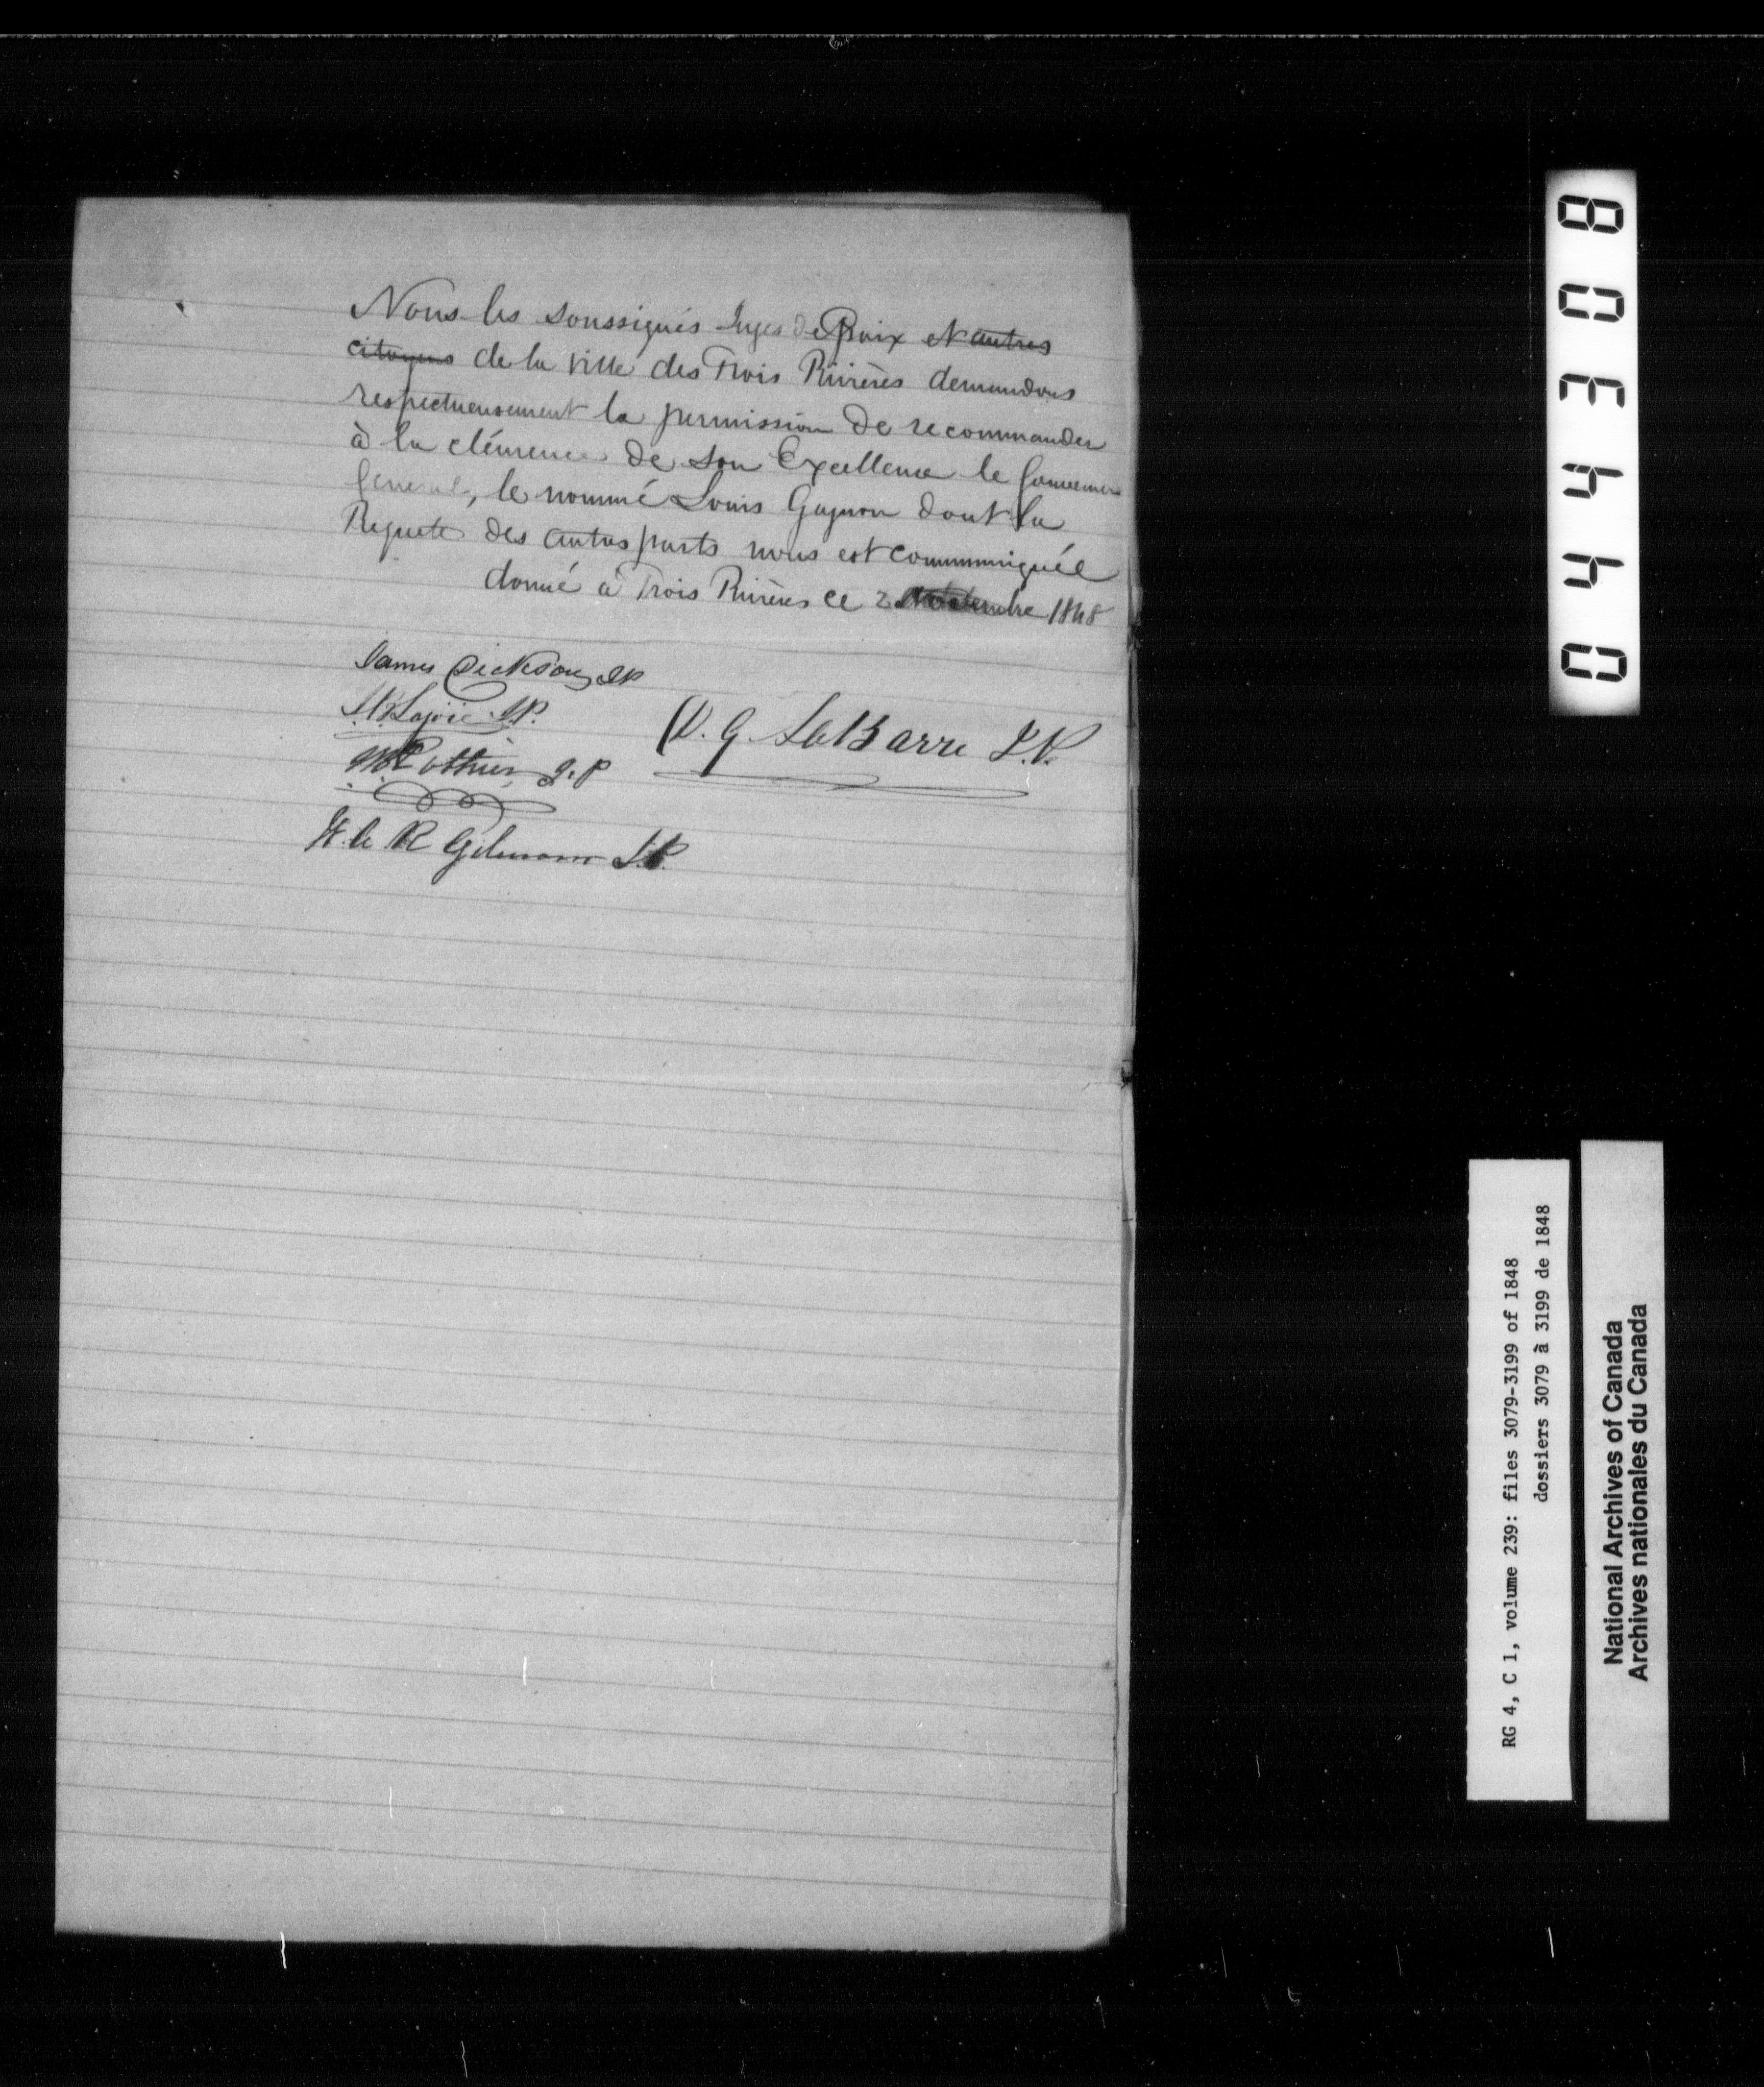 Nous les soussignés Juges de Paix et autres
citoyens de la Ville des Trois Rivières demandons
respectueusement la permission de recommander
à la clémence de Son Excellence le Gouverneur
General, le nommé Louis Gagnon dont la
Requete des autres parts nous est communiquée
donné à Trois Rivières ce 2 1848
James Dickson JP
Lajoie J.P.
D. G. LaBarre J.P.
Pothier J.P
R Gilmour J.P.
0 4 4 3 0 8
RG 4, C 1, volume 239: files 3079-3199 of 1848
dossiers 3079 à 3199 de 1848
National Archives of Canada
Archives nationales du Canada